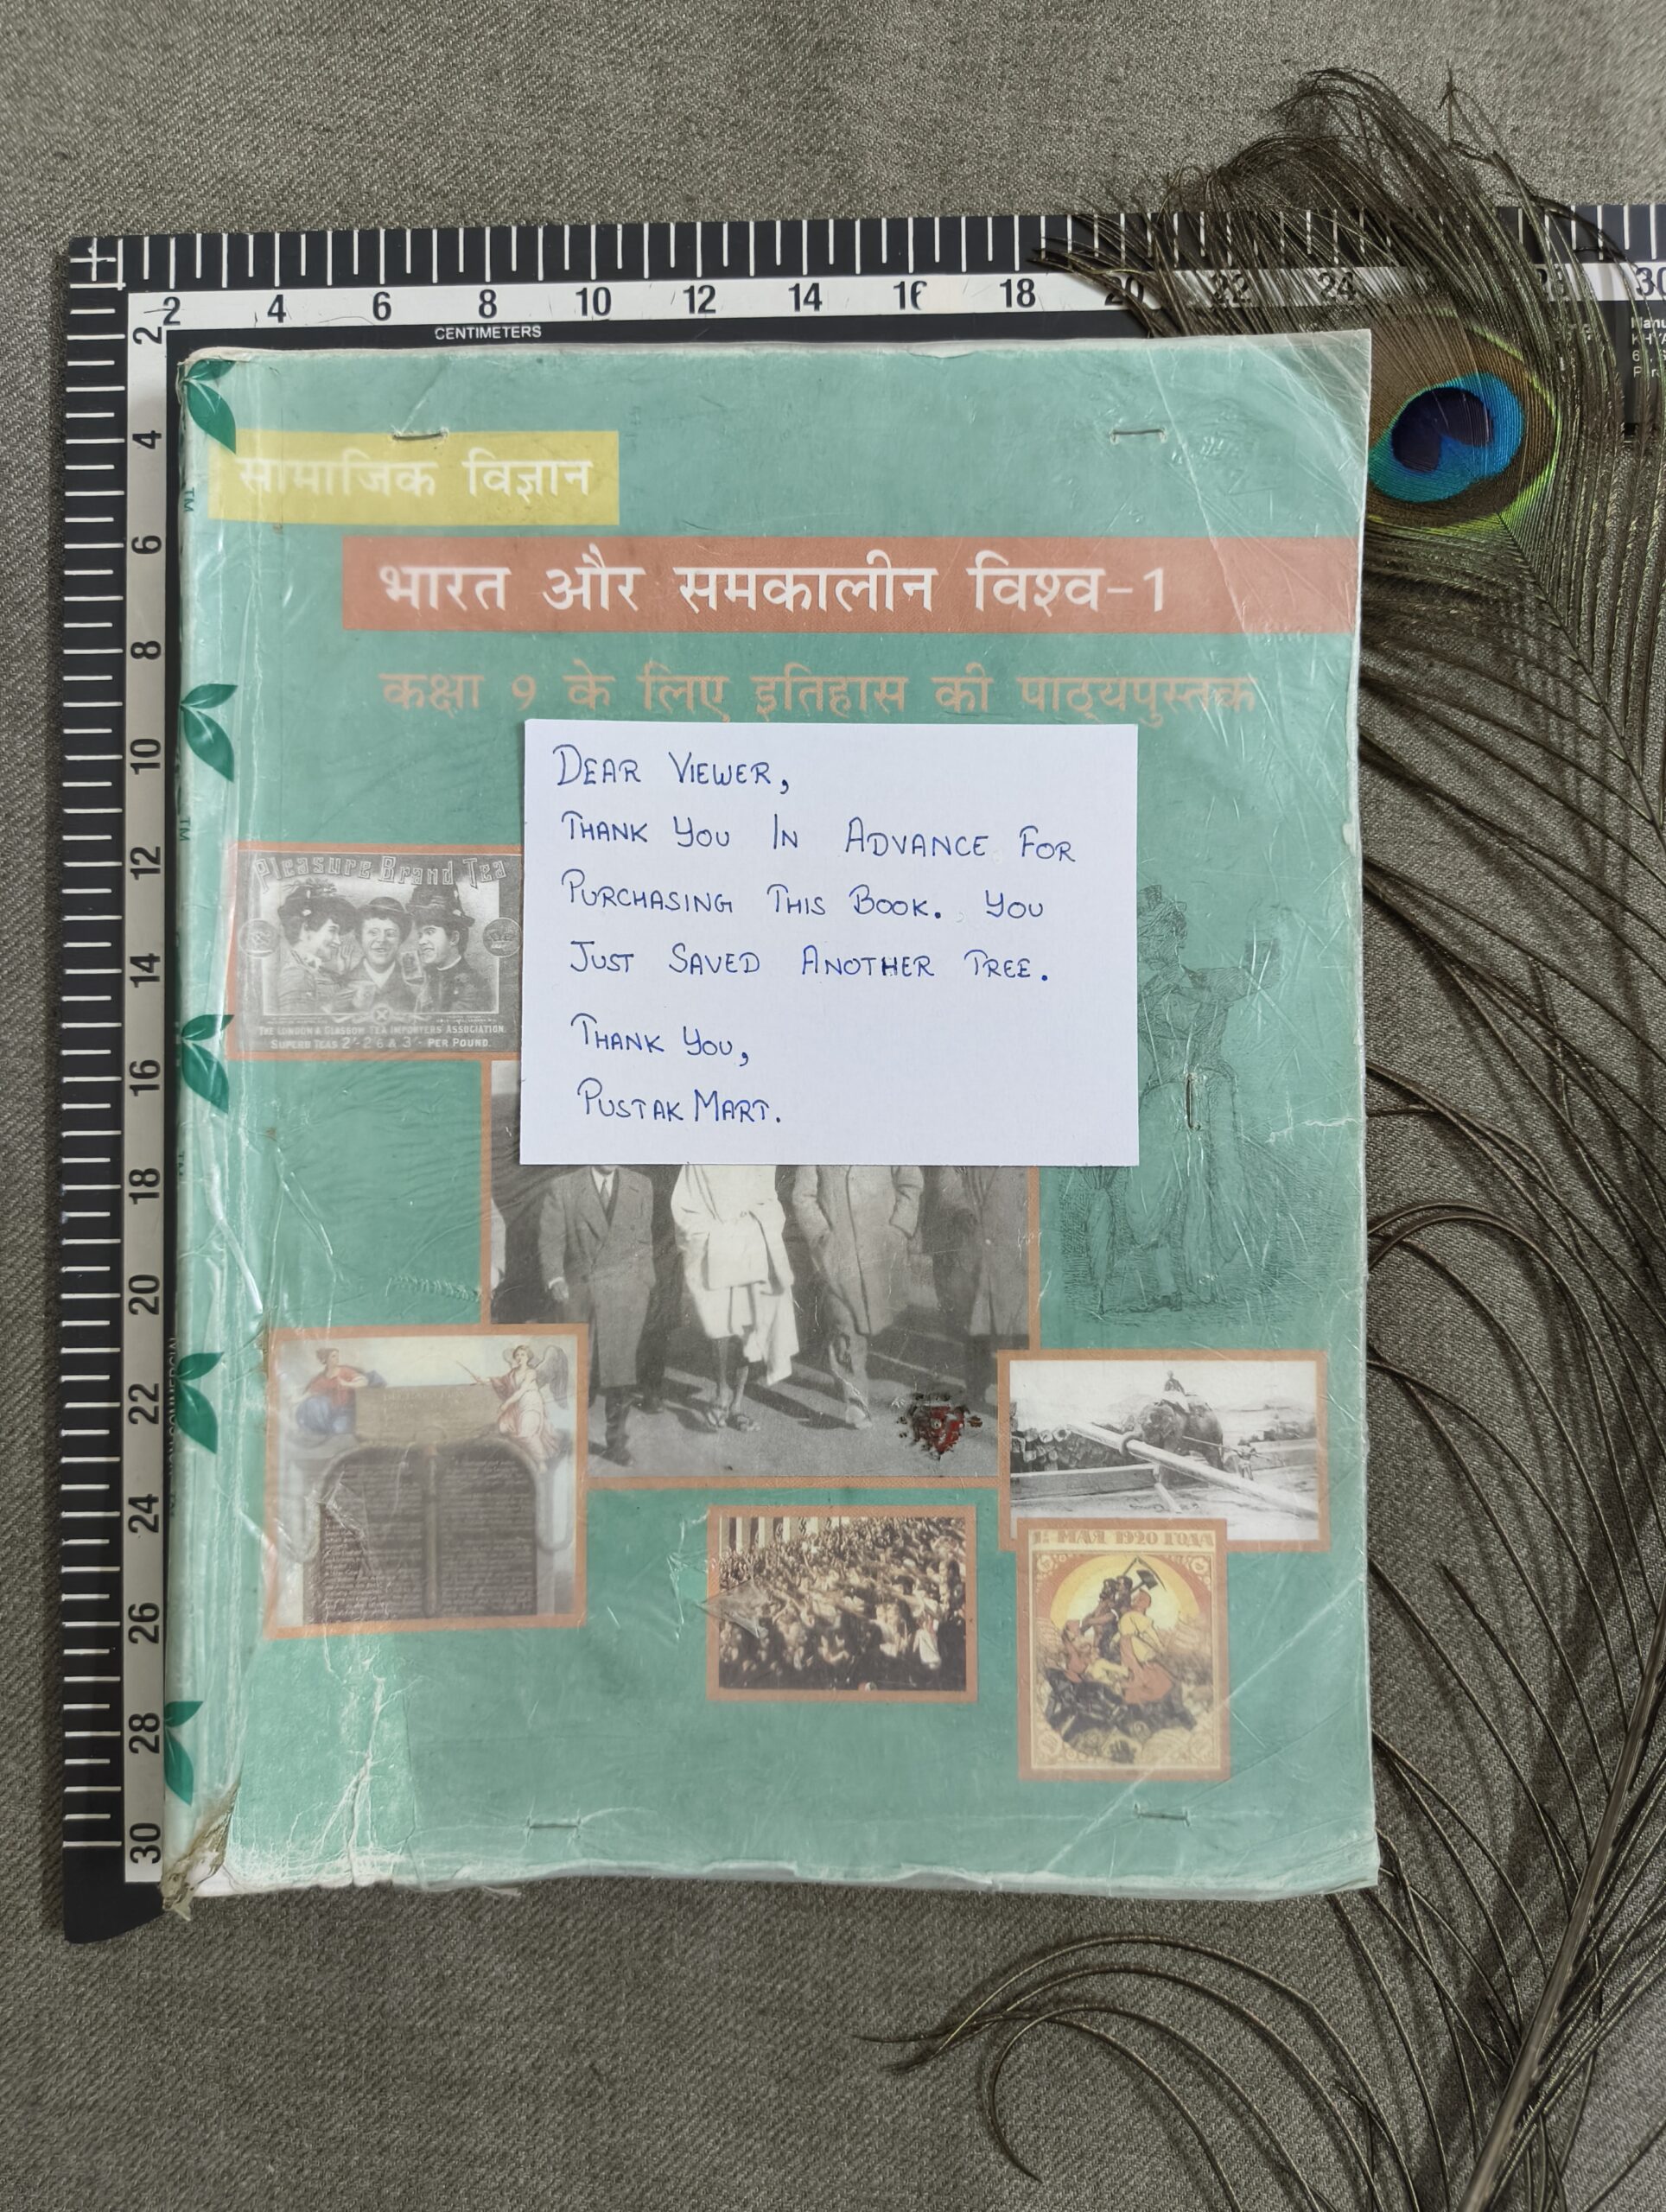 2 4 6 8 10 12 14 16 18 20 22 24 28 30
CENTIMETERS
2
4
6
8
10
12
14
16
18
20
22
24
26
28
30
सामाजिक विज्ञान
भारत और समकालीन विश्व-1
कक्षा 9 के लिए इतिहास की पाठ्यपुस्तक
DEAR VIEWER,
THANK YOU IN ADVANCE FOR
PURCHASING THIS BOOK. YOU
JUST SAVED ANOTHER TREE.
THANK YOU,
PUSTAK MART.
Pleasure Brand Tea
THE LONDON & GLASGOW TEA IMPORTERS ASSOCIATION.
SUPERB TEAS 2/- 2/6 & 3/- PER POUND.
1: МАЯ 1920 ГОДА
TM
TM